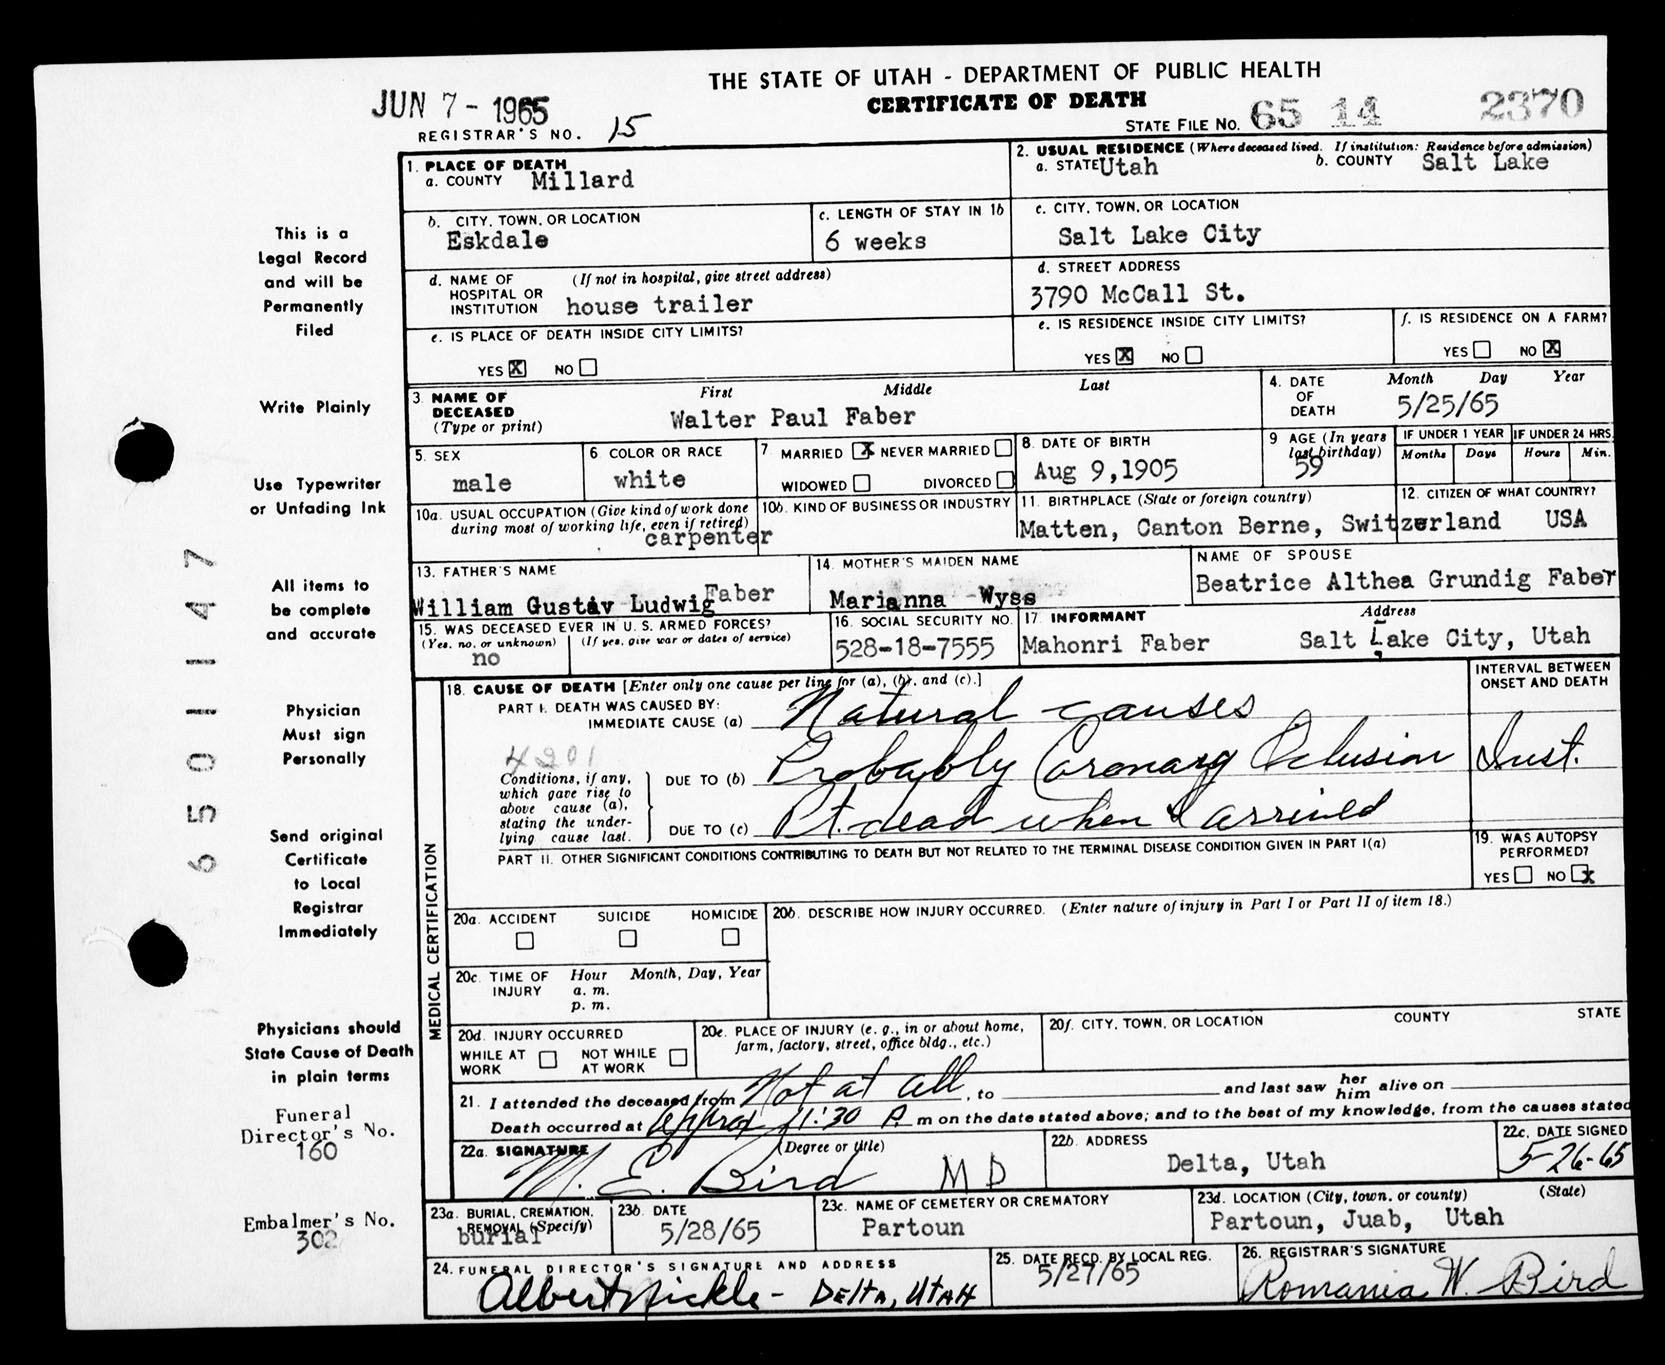 THE STATE OF UTAH - DEPARTMENT OF PUBLIC HEALTH
CERTIFICATE OF DEATH
JUN 7 - 1965
REGISTRAR'S NO. 15
STATE FILE NO. 65 14 2370
This is a
Legal Record
and will be
Permanently
Filed
Write Plainly
Use Typewriter
or Unfading Ink
All items to
be complete
and accurate
Physician
Must sign
Personally
Send original
Certificate
to Local
Registrar
Immediately
Physicians should
State Cause of Death
in plain terms
Funeral
Director's No.
160
Embalmer's No.
302
6501147
1. PLACE OF DEATH
a. COUNTY Millard
2. USUAL RESIDENCE (Where deceased lived. If institution: Residence before admission)
a. STATE Utah b. COUNTY Salt Lake
b. CITY, TOWN, OR LOCATION
Eskdale
c. LENGTH OF STAY IN 1b
6 weeks
c. CITY, TOWN, OR LOCATION
Salt Lake City
d. NAME OF HOSPITAL OR INSTITUTION (If not in hospital, give street address)
house trailer
d. STREET ADDRESS
3790 McCall St.
e. IS PLACE OF DEATH INSIDE CITY LIMITS?
YES X NO
e. IS RESIDENCE INSIDE CITY LIMITS?
YES X NO
f. IS RESIDENCE ON A FARM?
YES NO X
3. NAME OF DECEASED (Type or print)
First Middle Last
Walter Paul Faber
4. DATE OF DEATH
Month Day Year
5/25/65
5. SEX
male
6 COLOR OR RACE
white
7. MARRIED X NEVER MARRIED
WIDOWED DIVORCED
8. DATE OF BIRTH
Aug 9,1905
9 AGE (In years last birthday)
59
IF UNDER 1 YEAR
Months Days
IF UNDER 24 HRS.
Hours Min.
10a. USUAL OCCUPATION (Give kind of work done during most of working life, even if retired)
carpenter
10b. KIND OF BUSINESS OR INDUSTRY
11. BIRTHPLACE (State or foreign country)
Matten, Canton Berne, Switzerland
12. CITIZEN OF WHAT COUNTRY?
USA
13. FATHER'S NAME
William Gustav Ludwig Faber
14. MOTHER'S MAIDEN NAME
Marianna Wyss
NAME OF SPOUSE
Beatrice Althea Grundig Faber
15. WAS DECEASED EVER IN U.S. ARMED FORCES?
(Yes, no, or unknown) (If yes, give war or dates of service)
no
16. SOCIAL SECURITY NO.
528-18-7555
17. INFORMANT Address
Mahonri Faber Salt Lake City, Utah
MEDICAL CERTIFICATION
18. CAUSE OF DEATH [Enter only one cause per line for (a), (b), and (c).]
INTERVAL BETWEEN ONSET AND DEATH
PART I. DEATH WAS CAUSED BY:
IMMEDIATE CAUSE (a) Natural causes
4201
Conditions, if any, which gave rise to above cause (a), stating the underlying cause last.
DUE TO (b) Probably Coronary Oclusion Inst.
DUE TO (c) Pt. dead when I arrived
PART II. OTHER SIGNIFICANT CONDITIONS CONTRIBUTING TO DEATH BUT NOT RELATED TO THE TERMINAL DISEASE CONDITION GIVEN IN PART I(a)
19. WAS AUTOPSY PERFORMED?
YES NO X
20a. ACCIDENT SUICIDE HOMICIDE
20b. DESCRIBE HOW INJURY OCCURRED. (Enter nature of injury in Part I or Part II of item 18.)
20c. TIME OF INJURY Hour a. m. p. m. Month, Day, Year
20d. INJURY OCCURRED
WHILE AT WORK NOT WHILE AT WORK
20e. PLACE OF INJURY (e. g., in or about home, farm, factory, street, office bldg., etc.)
20f. CITY, TOWN, OR LOCATION COUNTY STATE
21. I attended the deceased from Not at all, to and last saw her him alive on
Death occurred at Approx 11:30 P. m on the date stated above; and to the best of my knowledge, from the causes stated
22a. SIGNATURE (Degree or title)
M. E. Bird MD
22b. ADDRESS
Delta, Utah
22c. DATE SIGNED
5-26-65
23a. BURIAL, CREMATION, REMOVAL (Specify)
burial
23b. DATE
5/28/65
23c. NAME OF CEMETERY OR CREMATORY
Partoun
23d. LOCATION (City, town, or county) (State)
Partoun, Juab, Utah
24. FUNERAL DIRECTOR'S SIGNATURE AND ADDRESS
Albert Nickle - Delta, Utah
25. DATE RECD. BY LOCAL REG.
5/27/65
26. REGISTRAR'S SIGNATURE
Romania W. Bird